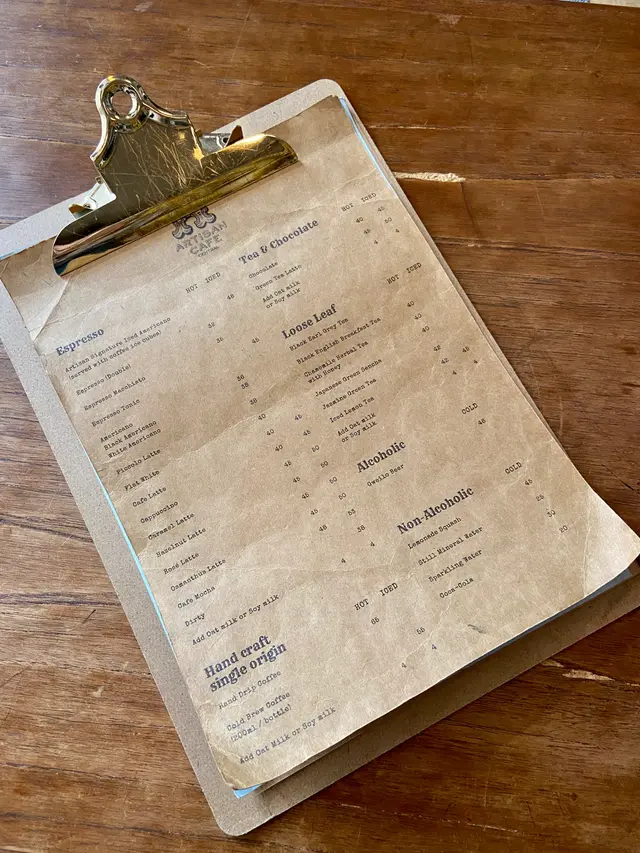 ARTISAN
CAFE
CENTRAL
HOT ICED
Espresso
Artisan Signature Iced Americano 45
(served with coffee ice cubes)
Espresso (Double) 32
Espresso Macchiato 35
Espresso Tonic 45
Americano
Black Americano 38
White Americano 38
Piccolo Latte 38
Flat White 40
Cafe Latte 40 45
Cappuccino 40 45
Caramel Latte 45 50
Hazelnut Latte 45 50
Rosé Latte 45 50
Osmanthus Latte 45 50
Cafe Mocha 48 53
Dirty 38
Add Oat milk or Soy milk 4 4
HOT ICED
Hand craft
single origin
Hand Drip Coffee 65
Cold Brew Coffee 55
(200ml / bottle)
Add Oat Milk or Soy milk 4 4
HOT ICED
Tea & Chocolate
Chocolate 40 45
Green Tea Latte 45 50
Add Oat milk 4 4
or Soy milk
HOT ICED
Loose Leaf
Black Earl Grey Tea 40
Black English Breakfast Tea 40
Chamomile Herbal Tea 40
with Honey
Japanese Green Sencha
Jasmine Green Tea 42
Iced Lemon Tea 45
Add Oat milk 4 4
or Soy milk
COLD
Alcoholic
Gweilo Beer 48
COLD
Non-Alcoholic
Lemonade Squash 45
Still Mineral Water 25
Sparkling Water 30
Coca-Cola 20